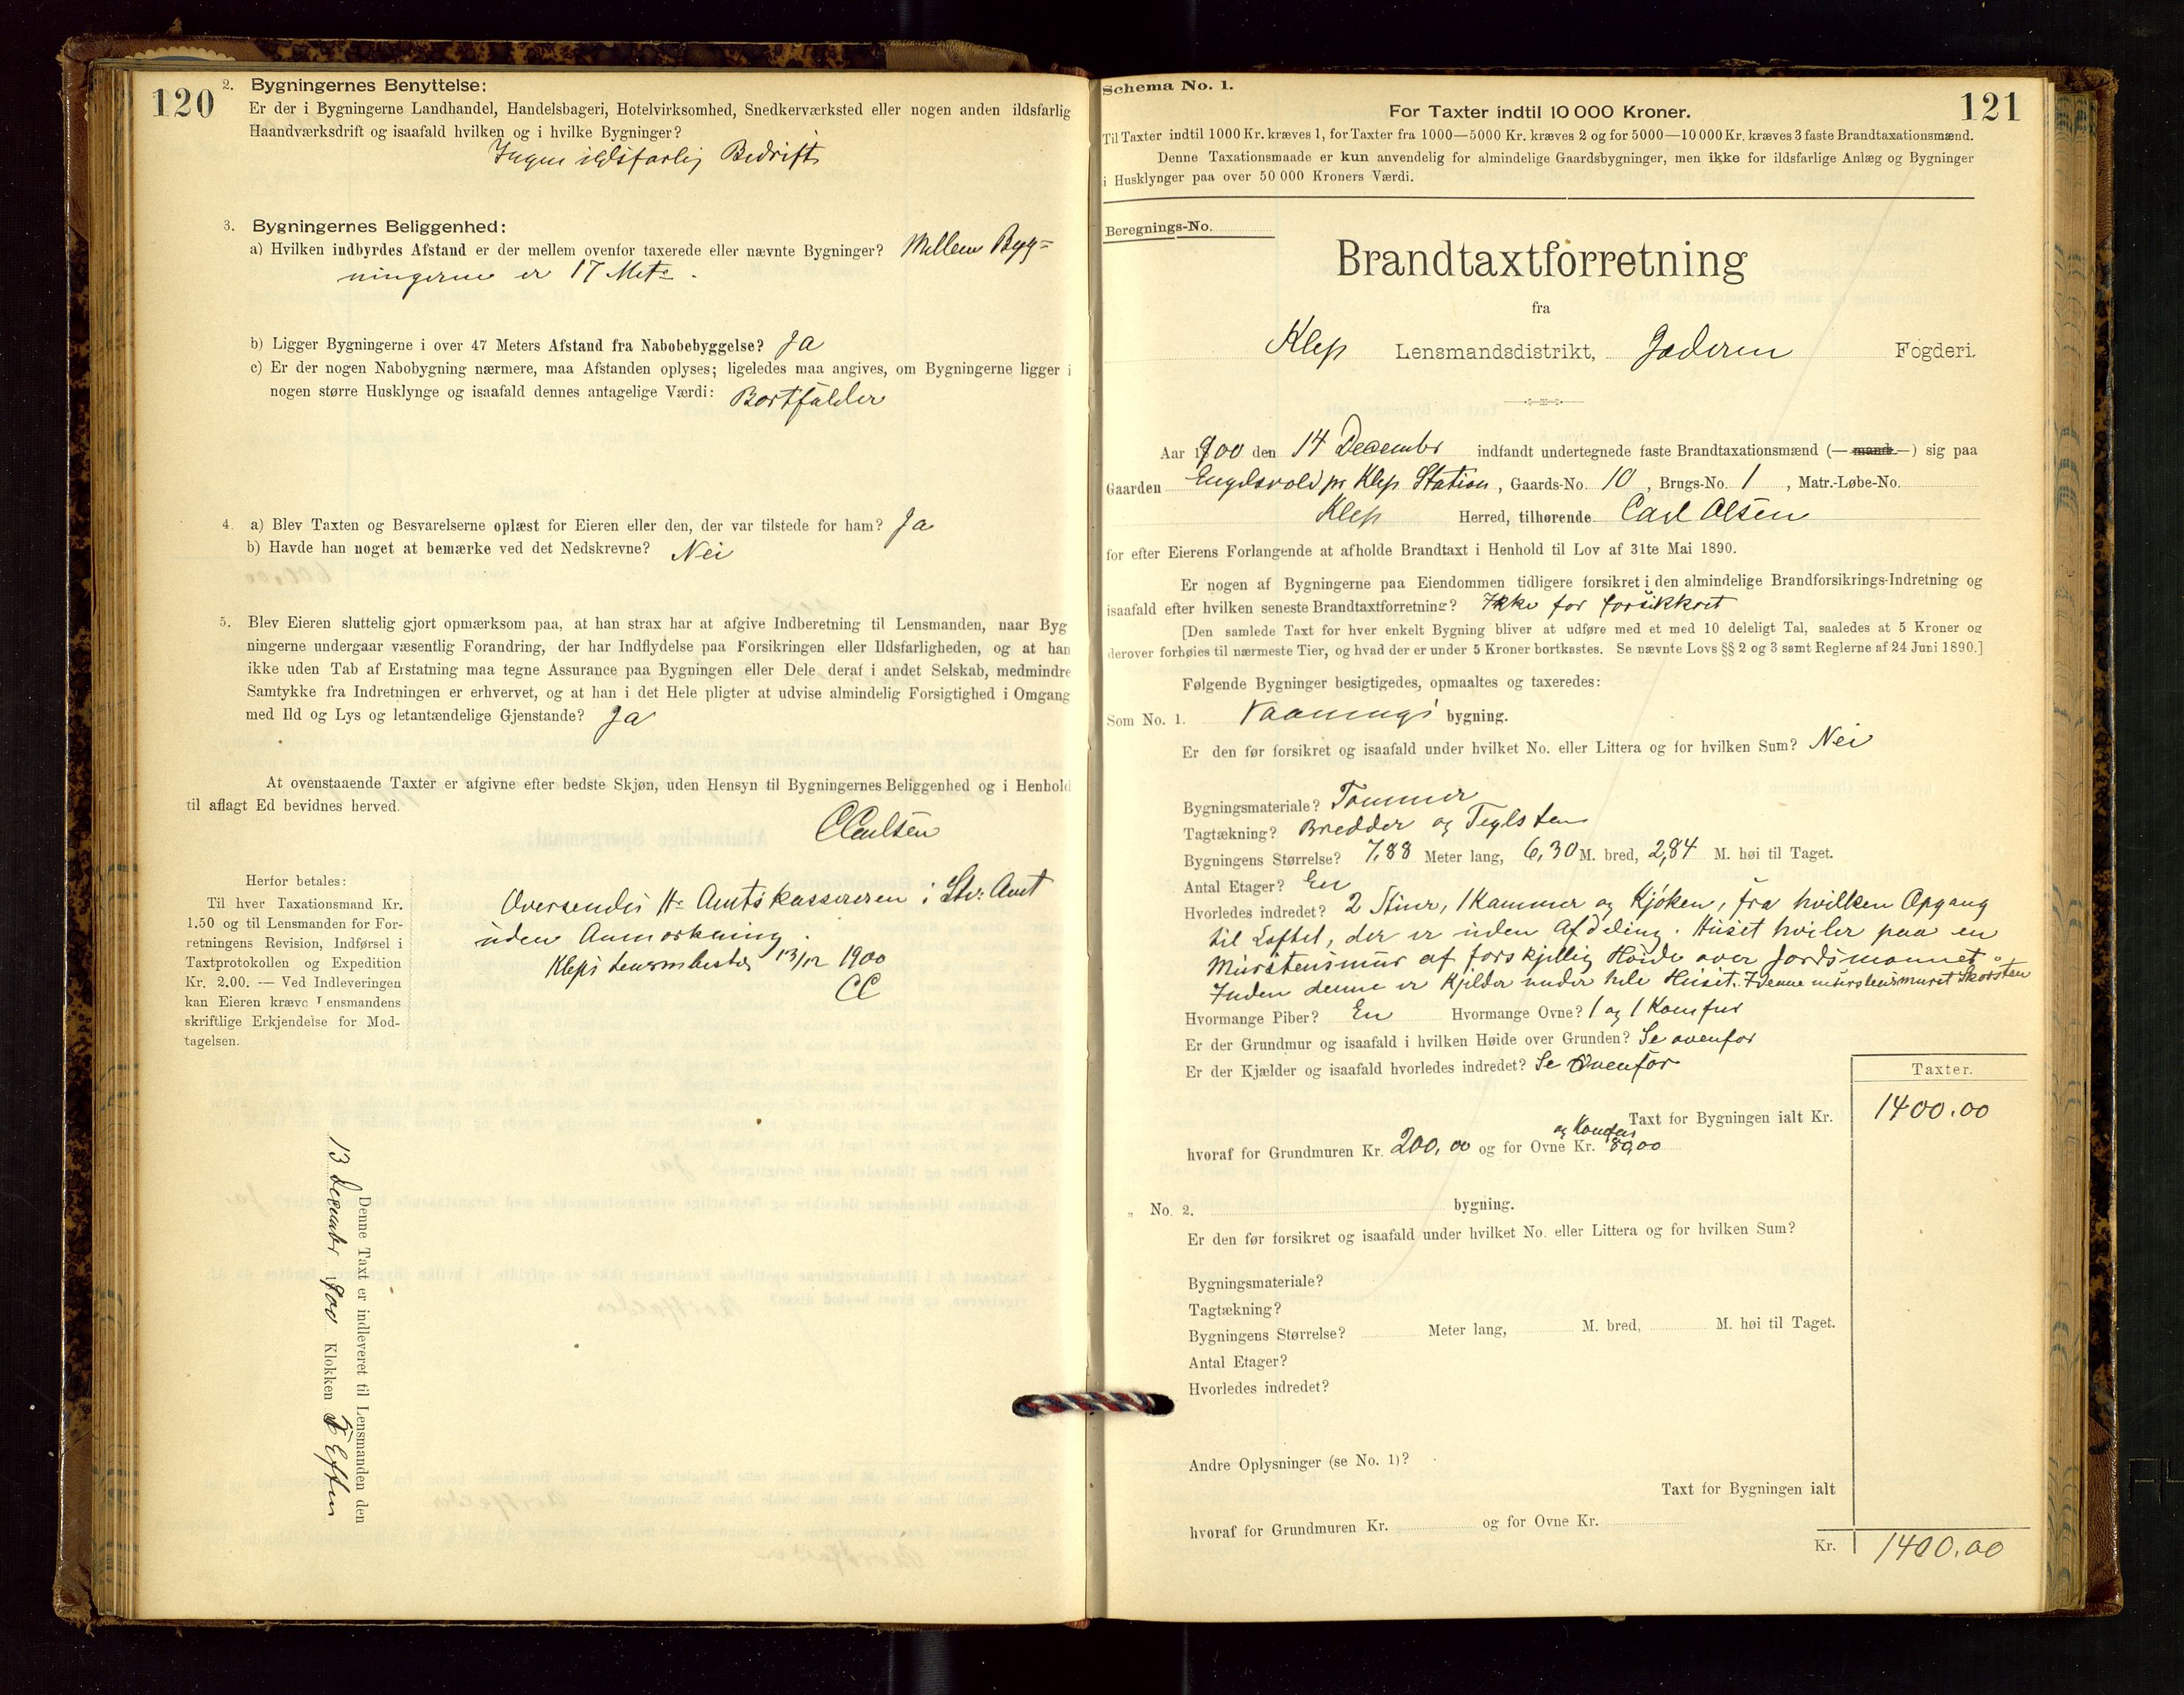 120
2. Bygningernes Benyttelse:
Er der i Bygningerne Landhandel, Handelsbageri, Hotelvirksomhed, Snedkerværksted eller nogen anden ildsfarlig
Haandværksdrift og isaafald hvilken og i hvilke Bygninger?
Ingen ildsfarlig Bedrift
3. Bygningernes Beliggenhed:
a) Hvilken indbyrdes Afstand er der mellem ovenfor taxerede eller nævnte Bygninger? Mellem Byg=
ningerne er 17 Mete.
b) Ligger Bygningerne i over 47 Meters Afstand fra Nabobebyggelse? Ja
c) Er der nogen Nabobygning nærmere, maa Afstanden oplyses; ligeledes maa angives, om Bygningerne ligger i
nogen større Husklynge og isaafald dennes antagelige Værdi: Bortfalder
4. a) Blev Taxten og Besvarelserne oplæst for Eieren eller den, der var tilstede for ham? Ja
b) Havde han noget at bemærke ved det Nedskrevne? Nei
5. Blev Eieren sluttelig gjort opmærksom paa, at han strax har at afgive Indberetning til Lensmanden, naar Byg
ningerne undergaar væsentlig Forandring, der har Indflydelse paa Forsikringen eller Ildsfarligheden, og at han
ikke uden Tab af Erstatning maa tegne Assurance paa Bygningen eller Dele deraf i andet Selskab, medmindre
Samtykke fra Indretningen er erhvervet, og at han i det Hele pligter at udvise almindelig Forsigtighed i Omgang
med Ild og Lys og letantændelige Gjenstande? Ja
At ovenstaaende Taxter er afgivne efter bedste Skjøn, uden Hensyn til Bygningernes Beliggenhed og i Henhold
til aflagt Ed bevidnes herved.
CCarlsen
Herfor betales:
Til hver Taxationsmand Kr.
1.50 og til Lensmanden for For-
retningens Revision, Indførsel i
Taxtprotokollen og Expedition
Kr. 2.00. — Ved Indleveringen
kan Eieren kræve Lensmandens
skriftlige Erkjendelse for Mod-
tagelsen.
Oversendes Hr Amtskassereren i Stv. Amt
uden Anmærkning.
Kleps 13/12 1900
CC
Denne Taxt er indleveret til Lensmanden den
13 December 1900 Klokken Eftm
Schema No. 1.
121
For Taxter indtil 10 000 Kroner.
Til Taxter indtil 1000 Kr. kræves 1, for Taxter fra 1000—5000 Kr. kræves 2 og for 5000—10 000 Kr. kræves 3 faste Brandtaxationsmænd.
Denne Taxationsmaade er kun anvendelig for almindelige Gaardsbygninger, men ikke for ildsfarlige Anlæg og Bygninger
i Husklynger paa over 50 000 Kroners Værdi.
Beregnings-No.
Brandtaxtforretning
fra
Klep Lensmandsdistrikt, Jæderen Fogderi.
Aar 1900 den 14 December indfandt undertegnede faste Brandtaxationsmænd (— mand —) sig paa
Gaarden Engelsvold pr Klep Station, Gaards-No. 10, Brugs-No. 1, Matr.-Løbe-No.
Klep Herred, tilhørende Carl Olsen
for efter Eierens Forlangende at afholde Brandtaxt i Henhold til Lov af 31te Mai 1890.
Er nogen af Bygningerne paa Eiendommen tidligere forsikret i den almindelige Brandforsikrings-Indretning og
isaafald efter hvilken seneste Brandtaxtforretning? Ikke før forsikkret
[Den samlede Taxt for hver enkelt Bygning bliver at udføre med et med 10 deleligt Tal, saaledes at 5 Kroner og
derover forhøies til nærmeste Tier, og hvad der er under 5 Kroner bortkastes. Se nævnte Lovs §§ 2 og 3 samt Reglerne af 24 Juni 1890.]
Følgende Bygninger besigtigedes, opmaaltes og taxeredes:
Som No. 1. Vaanings bygning.
Er den før forsikret og isaafald under hvilket No. eller Littera og for hvilken Sum? Nei
Bygningsmateriale? Tømmer
Tagtækning? Bredder og Teglsten
Bygningens Størrelse? 7,88 Meter lang, 6,30 M. bred, 2,84 M. høi til Taget.
Antal Etager? En
Hvorledes indredet? 2 Stuer, 1 Kammer og Kjøken, fra hvilken Opgang
til Loftet, der er uden Afdeling. Huset hviler paa en
Murstensmur af forskjellig Høide over Jordsmonnet.
Inden denne er Kjelder under hele Huset. I denne murstensmuret Skorsten
Hvormange Piber? En Hvormange Ovne? 1 og 1 Komfur
Er der Grundmur og isaafald i hvilken Høide over Grunden? Se ovenfor
Er der Kjælder og isaafald hvorledes indredet? Se Ovenfor
Taxter.
Taxt for Bygningen ialt Kr. 1400.00
og Komfur
hvoraf for Grundmuren Kr. 200,00 og for Ovne Kr. 80,00
„ No. 2. bygning.
Er den før forsikret og isaafald under hvilket No. eller Littera og for hvilken Sum?
Bygningsmateriale?
Tagtækning?
Bygningens Størrelse? Meter lang, M. bred, M. høi til Taget.
Antal Etager?
Hvorledes indredet?
Andre Oplysninger (se No. 1)?
Taxt for Bygningen ialt
hvoraf for Grundmuren Kr. og for Ovne Kr.
Kr. 1400.00